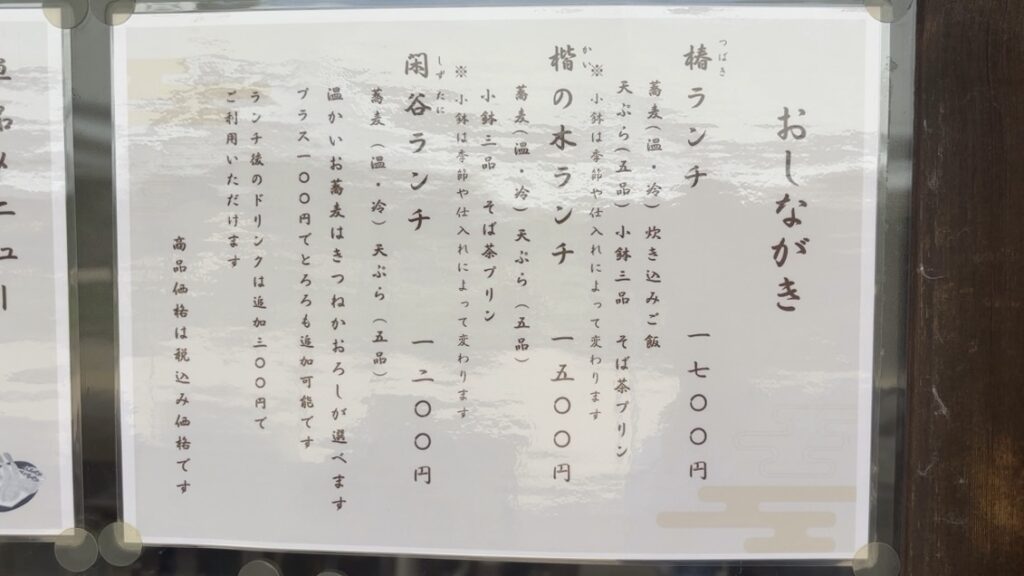 おしながき
つばき
椿ランチ 一七〇〇円
蕎麦(温・冷) 炊き込みご飯
天ぷら(五品) 小鉢三品 そば茶プリン
※小鉢は季節や仕入れによって変わります
かい
楷の木ランチ 一五〇〇円
蕎麦(温・冷) 天ぷら(五品)
小鉢三品 そば茶プリン
※小鉢は季節や仕入れによって変わります
しずたに
閑谷ランチ 一二〇〇円
蕎麦(温・冷) 天ぷら(五品)
温かいお蕎麦はきつねかおろしが選べます
プラス一〇〇円でとろろも追加可能です
ランチ後のドリンクは追加三〇〇円で
ご利用いただけます
商品価格は税込み価格です